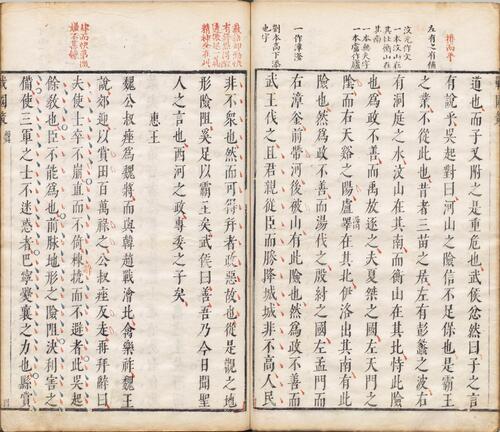 道也而子又附之是重危也武侯忿然曰子之言
有說乎吳起對曰河山之險信不足保也是霸王
之業不從此也昔者三苗之居左有彭蠡之波右
有洞庭之水汶山在其南而衡山在其北恃此險
也為政不善而禹放逐之夫夏桀之國左天門之
陰而右天谿之陽廬睪在其北伊洛出其南有此
險也然為政不善而湯伐之殷紂之國左孟門而
右漳釜前帶河後被山有此險也然為政不善而
武王伐之且君親從臣而勝降城城非不高人民
一作漳滏
劉本高下添
也字
非不衆也然而可得幷者政惡故也從是觀之地
形險阻奚足以霸王矣武侯曰善吾乃今日聞聖
人之言也西河之政專委之子矣
惠王
魏公叔痤為魏將而與韓趙戰澮北禽樂祚魏王
說郊迎以賞田百萬祿之公叔痤反走再拜辭曰
夫使士卒不崩直而不倚棟撓而不避者此吳起
餘敎也臣不能為也前脉地形之險阻決利害之
備使三軍之士不迷惑者巴寧爨襄之力也縣賞
戰國策